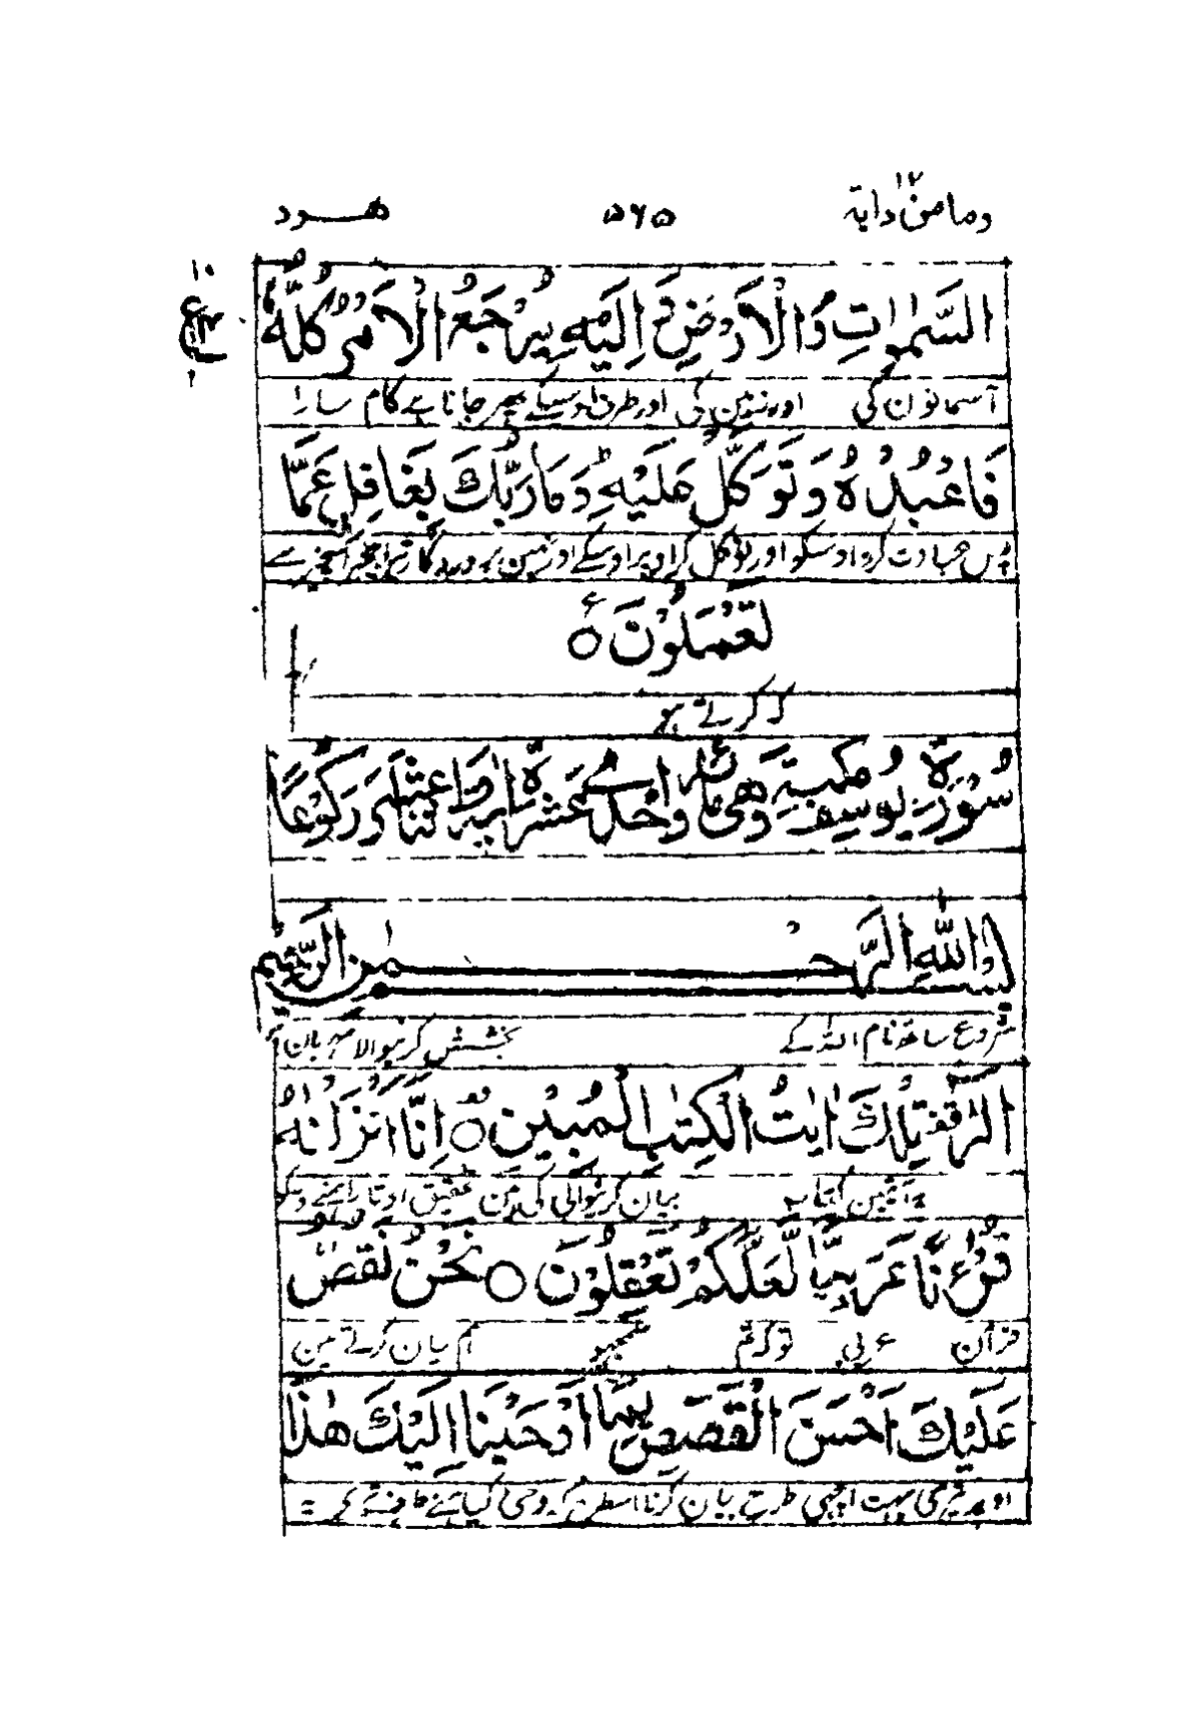 وما من دابة ١٢
٥٦٥
هود
السَّمٰوٰتِ وَالْاَرْضِ وَاِلَيْهِ يُرْجَعُ الْاَمْرُ كُلُّهٗ
١٠
ع
آسمانون کی اور زمین کی اور طرف اوسیکے پھیر جاتا ہے کام سارا
فَاعْبُدْهُ وَتَوَكَّلْ عَلَيْهِ ؕ وَمَا رَبُّكَ بِغَافِلٍ عَمَّا
پس عبادت کرو اوسکو اور توکل کر اوپر اوسکے اور نہین پروردگار تیرا بیخبر اس چیز سے
تَعْمَلُوْنَ ۝ ع
کہ کرتے ہو
سُوْرَةُ يُوْسُفَ مَكِّيَّةٌ وَّهِيَ مِائَةٌ وَّاِحْدٰى عَشْرَةَ اٰيَةً وَّاثْنَا عَشَرَ رُكُوْعًا
بِسْمِ اللّٰهِ الرَّحْمٰنِ الرَّحِيْمِ
شروع ساتھ نام اللہ کے بخشش کرنیوالا مہربان
الٓرٰ ۟ تِلْكَ اٰيٰتُ الْكِتٰبِ الْمُبِيْنِ ۝ اِنَّا اَنْزَلْنٰهُ
یہ آیتین کتاب بیان کرنیوالی کی ہین تحقیق اوتارا ہمنے
قُرْءٰنًا عَرَبِيًّا لَّعَلَّكُمْ تَعْقِلُوْنَ ۝ نَحْنُ نَقُصُّ
قرآن عربی توکہ تم سمجھو ہم بیان کرتے ہین
عَلَيْكَ اَحْسَنَ الْقَصَصِ بِمَآ اَوْحَيْنَآ اِلَيْكَ هٰذَا
اوپر تیرے بہت اچھی طرح بیان کرنا اسطرح کہ وحی کیا ہمنے طرف تیرے یہ